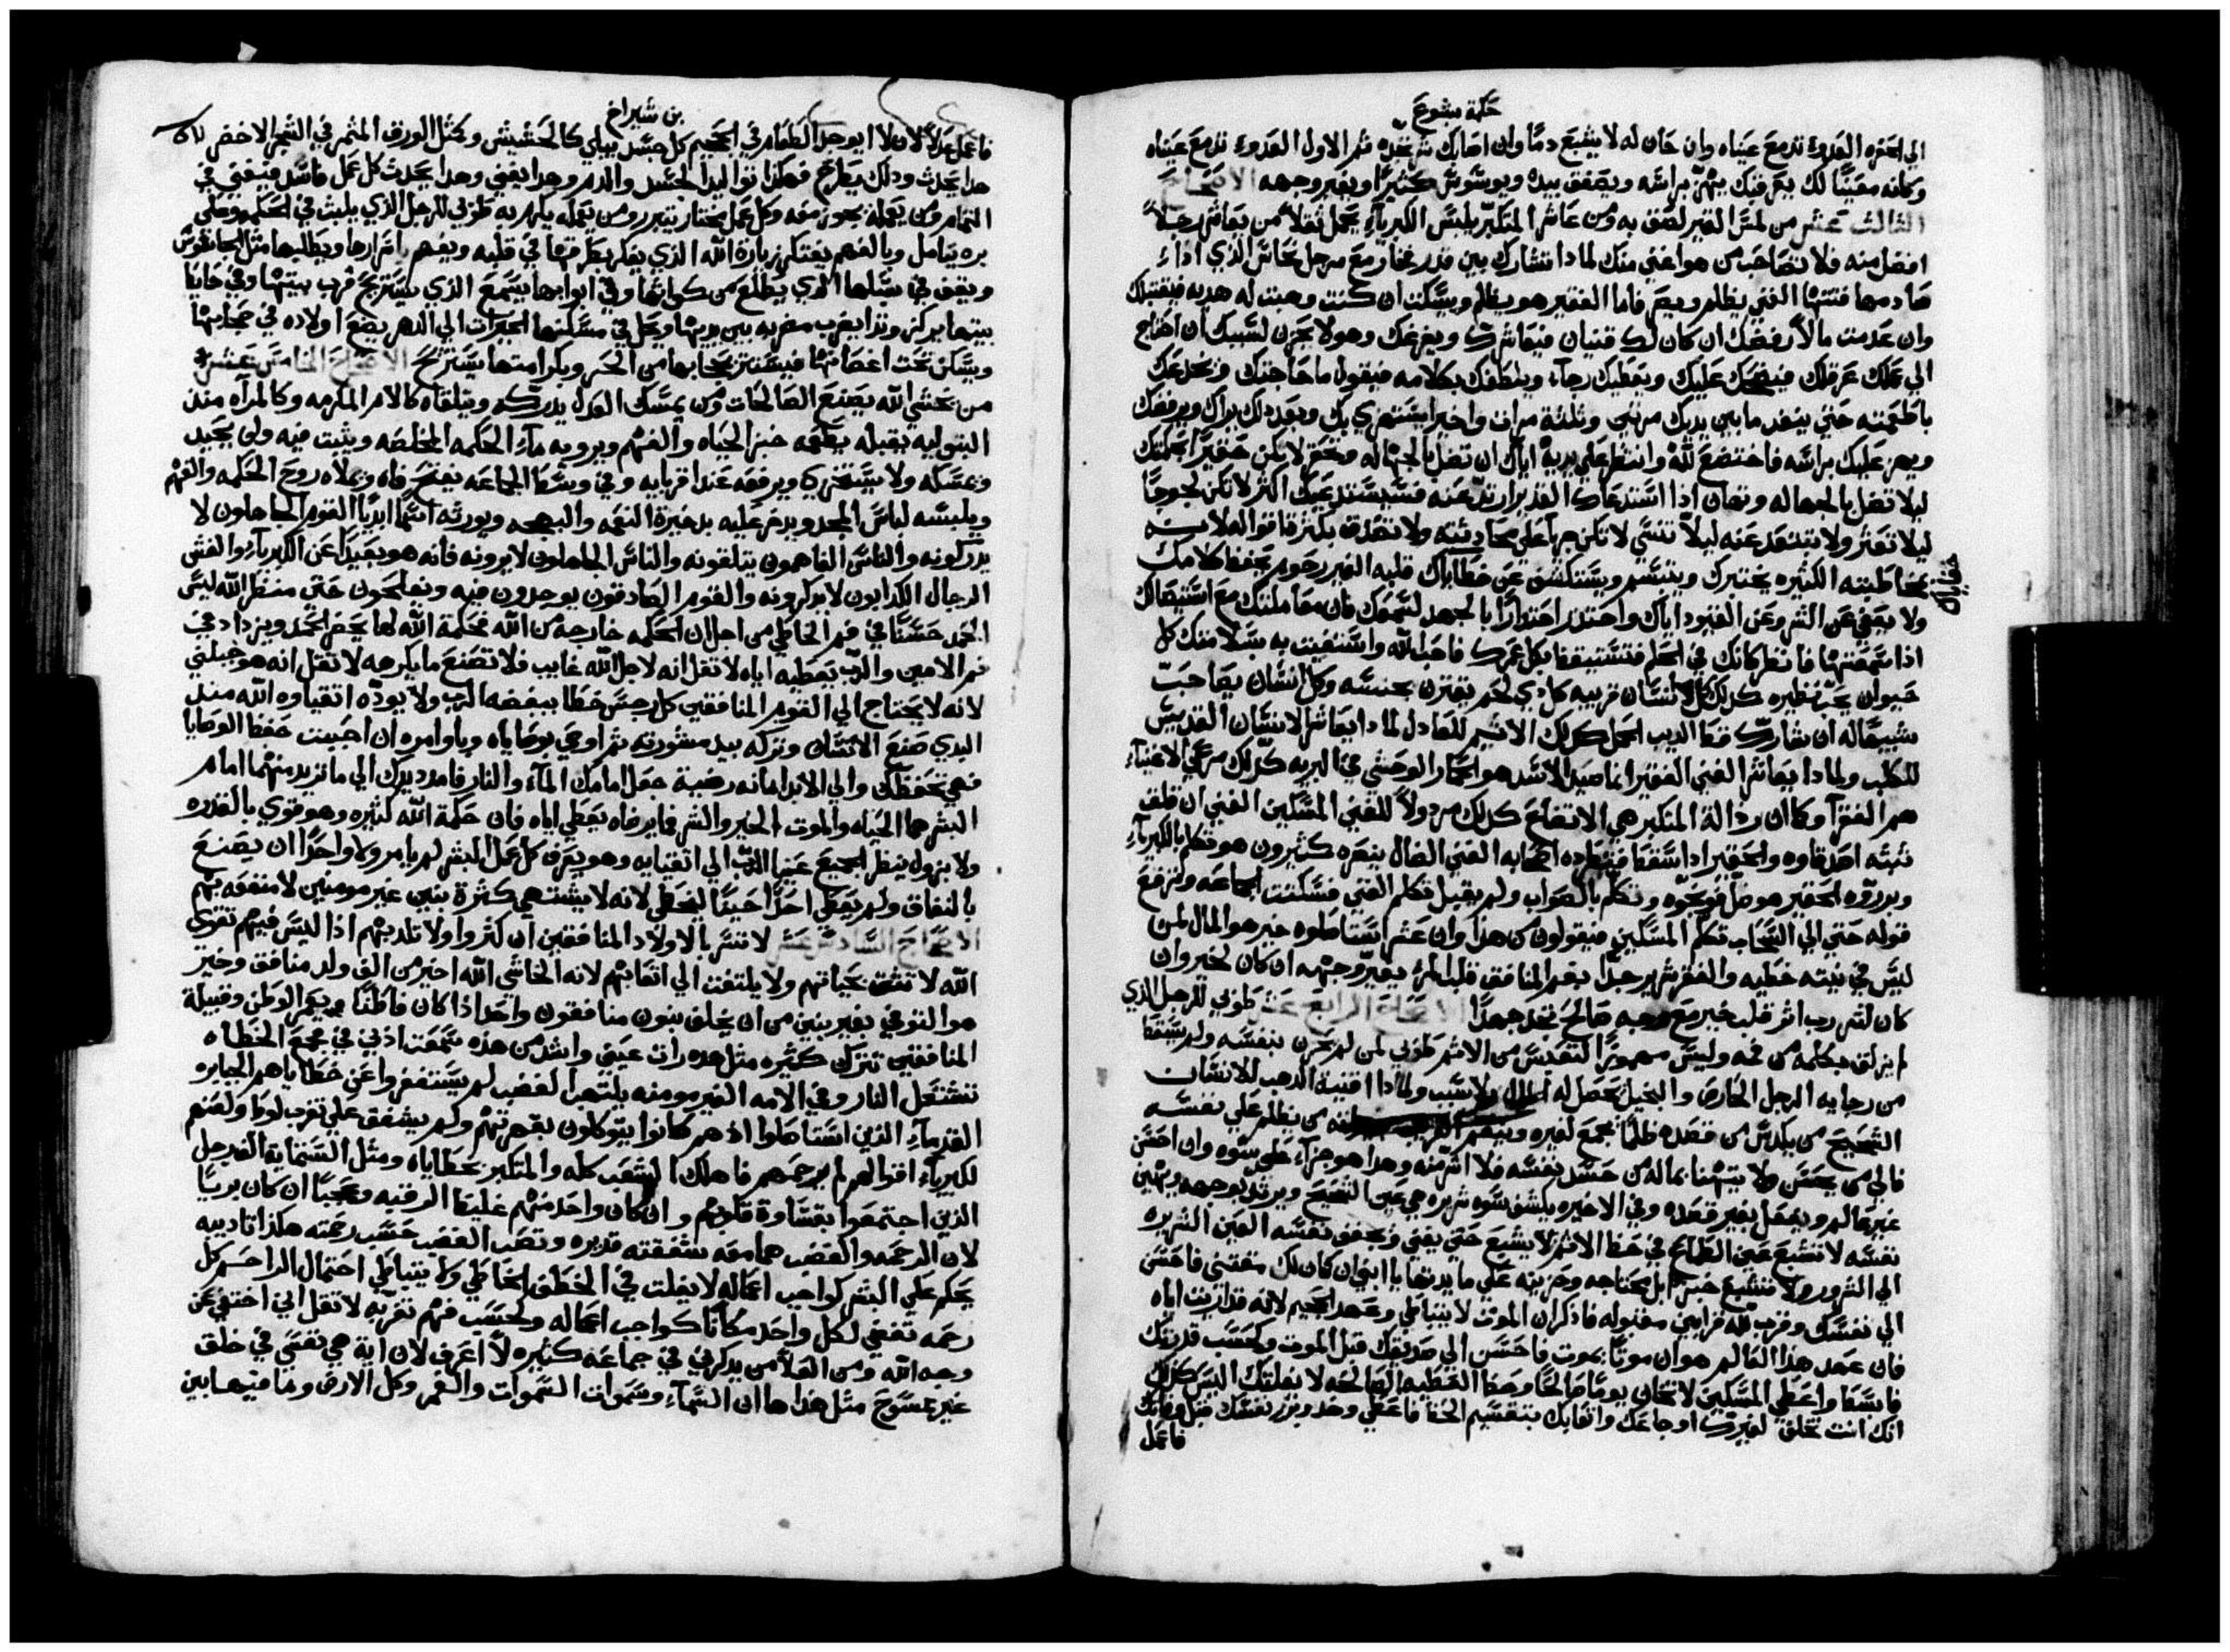 حكمة يشوع
الى الحفره العدوء تدمع عيناه وان حان له لا يشبع دمًا وان اصابك شر تجده ثم الاول العدوء تدمع عيناه
وكانه معينًا لك يعرقبك يهز براسه ويصفق بيده ويوشوش كثيرًا ويغير وجهه الاصحاح
الثالث عشر من لمس القير لصق به ومن عاشر المتكبر يلبس الكبرياء يحمل ثقلا من يعاشر رجلاً
افضل منه فلا تصاحب من هو اغنى منك لماذا تشارك بين قدر فخار مع مرجل نحاس الذي اذا
صادمها فتتها الغني يظلم ويصر فاما الفقير هو يظلم ويسكت ان كنت وهبت له هديه فيقتبلك
وان عدمت مالا يرفضك ان كان لك قنيان فيعاشرك ويفرغك وهو لا يحزن لسببك ان احتاج
الى عملك عرقلك فيضحك عليك ويعطيك رجاء ويلطفك بكلامه فيقول ما حاجتك ويخدعك
باطعمته حتى ينفد ما بين يديك مرتين وثلثة مرات واخيرا يستهزي بك وبعد ذلك يراك ويرفضك
ويهز عليك براسه فاختضع لله وانتظر على يديه اياك ان تضل بالجهاله وتحقر لا تكن حقيرًا بحكمتك
ليلا تضل بالجهاله وتهان اذا استدعاك القدير ارتد عنه فسيستدعيك اكثر لا تكن لجوجًا
ليلا تعثر ولا تبتعد عنه ليلا تنسى لا تكن حريا على محادثته ولا تصدق بكثرة اقواله لانه
بمخاطبته الكثيره يختبرك ويتبسم ويستكشف عن خطاياك قلبه الغير رحوم يحفظ كلامك
ولا يعفي عن الشر وعن القيود اياك واحتذر احتذارًا بالجهد لسمعك فان معاملتك مع استيصالك
اذا سمعتها فانظر كانك في الحلم فتستيقظ بكل عمرك فاحب الله واستغيث به بسلامتك كل
حيوان يحب نظيره كذلك كل انسان قريبه كل ذي لحم يقترن بجنسه وكل انسان يصاحب
شبيها له ان شارك قط الديب الحمل كذلك الاثيم للعادل لماذا يعاشر الانسان القديس
للكلب ولماذا يعاشر الغني الفقير انما صيد الاسد هو الحمار الوحشي في البريه كذلك مرعى الاغنياء
هم الفقرا وكما ان رذالة المتكبر هي الاتضاع كذلك مرذولاً للغني المسكين الغني ان قلق
ثبته اصدقاوه والحقير اذا سقط فتطرده اصحابه الغني الضال ينصره كثيرون هو تكلم بالكبرياء
ويزروه الحقير هو ضل فوبخوه وتكلم بالصواب ولم يقبل تكلم الغني فسكتت الجماعه وترفع
قوله حتى الى السحاب تكلم المسكين فيقولون من هذا وان عثر استاصلوه خير هو المال لمن
ليس في نيته خطيه والفقر شرير جدًا بفم المنافق قلب المرء يغير وجهه ان كان لخير وان
كان لشر رب اثر قلب خير مع وجه صالح تجد جهدًا الاصحاح الرابع عشر طوبى للرجل الذي
لم يزلق بكلمه من فمه وليس مهموزًا لتقديس من الاثم طوبى لمن لم يحزن بنفسه ولم يسقط
من رجايه الرجل الحارص والبخيل يحصل له المال ولا سبب ولماذا اقنية الذهب للانسان
الشحيح من يكدس من قصده ظلمًا يجمع لغيره من يظلم على نفسه
فالى من يحسن ولا يتهنا بماله من حسد بنفسه فلا اشر منه وهذا هو جزاء على سوه وان احسن
غير عالم ويفعل بغير قصده وفي الاخيره يكشف سوه شريره هي عين الشحيح ويرتد بوجهه ويهين
نفسه لا تشبع عين الطماع في حظ الاثم لا يشبع حتى يفنى ويجفف نفسه العين الشريره
الى الشرور ولا تشبع خبز ابل محتاجه وحزينه على مايدتها يا ابني ان كان لك مقتنى فاحسن
الى نفسك وقرب لله قرابين مقبوله فاذكر ان الموت لا يتباطي وعهد الجحيم لانه قد اريت اياه
فان عهد هذا العالم هو ان موتًا يموت فاحسن الى صديقك قبل الموت وكحسب قدرتك
فابسط واعطي المسكين لا تخاب يومًا صالحًا وحظ العطيه الصالحه لا يفلتك اليس كذلك
انك انت تخلق لغيرك اوجاعك واتعابك بتقسيم الحظ فاعطي وخذ وبرر نفسك قبل وفاتك
فاعمل
بن شيراخ
فاعمل عدلاً لان لا يوجد الطعام في الجحيم كل جسد يبلى كالحشيش وكمثل الورق المثمر في الشجر الاخضر
هذا يحدث وذلك يطرح فهكذا توالد الجسد والدم وهذا يفنى وهذا يحدث كل عمل فاسد فيفنى في
التمام ومن يعمله يجوز معه وكل عمل مختار يتبرر ومن يعمله يكرم به طوبى للرجل الذي يلبث في الحكمه وعلى
بره يتامل وبالفهم يفتكر زيارة الله الذي يفكر بطرقها في قلبه ويفهم اسرارها ويطلبها مثل الجاسوس
ويقف في سبلها الذي يطلع من كواتها وفي ابوابها يسمع الذي يستريح قرب بيتها وفي حايط
بيتها يركز وتدا يضرب مضربه بين يديها وتحل في مسكنها الخيرات الى الدهر يضع اولاده في حجابها
ويسكن تحت اغصانها فيستتر بحجابها من الحر وبكرامتها يستريح الاصحاح الخامس عشر
من يخشى الله يصنع الصالحات ومن يمسك العدل يدركه وتتلقاه كالام المكرمه وكالمراه منذ
البتوليه يقبله يطعمه خبز الحياه والفهم ويرويه ماء الحكمه المخلصه ويثبت فيه ولن يحيد
وتمسكه ولا يستخزي ويرفعه عند اقربايه وفي وسط الجماعه يفتح فاه وتملاه روح الحكمه والفهم
ويلبسه لباس المجد ويدخر عليه بدخيرة النعمه والبهجه ويورثه اسمًا ابديًا القوم الجاهلون لا
يدركونه والناس الفاهمون يتلقونه والناس الجاهلون لا يرونه فانه هو بعيدًا عن الكبرياء والغش
الرجال الكدابون لا يذكرونه والقوم الصادقون يوجدون فيه ونجاحون حتى منظر الله ليس
الحمد حسنًا في فم الخاطي من اجل ان الحكمه خارجة من الله فحكمة الله لها يحضر الحمد ويزداد في
فم الامين والرب يعطيه اياه لا تقل انه لاجل الله غايب فلا تصنع ما يكرهه لا تقل انه هو خيلني
لانه لا يحتاج الى القوم المنافقين كل رجس خطا يبغضه الرب ولا يوده اتقياوه الله منذ
البدي صنع الانسان وتركه بيد مشورته ثم اوحى بوصاياه وباوامره ان احببت حفظ الوصايا
فهي تحفظك والى الابد امانه رضية جعل امامك الماء والنار فامدد يدك الى ما تريد منهما امام
البشر هما الحياه والموت الخير والشر فما يرضاه يعطى اياه فان حكمة الله كثيره وهو قوي بالقدره
ولا يزول ينظر الجميع عينا الرب الى اتقيايه وهو يعرف كل عمل البشر لم يامر ولا واحدًا ان يصنع
بالنفاق ولم يعطي احدًا حينًا ليخطي لانه لا يشتهي كثرة بنين غير مومنين لا منفعه بهم
الاصحاح السادس عشر لا تتسر بالاولاد المنافقين ان كثروا ولا تلد بهم اذا ليس فيهم تقوى
الله لا تتثق بحياتهم ولا يلتفت الى اتعابهم لانه الخاشي الله اخير من الف ولد منافق وخير
هو التوفي بغير بنين من ان يخلف بنون منافقون واحد اذا كان فاطنًا يعمر الوطن وقبيلة
المنافقين تترك كثيره مثل هذه رات عيني واشد من هذه سمعت اذني في مجمع الخطاه
تشتعل النار وفي الامه الغير مومنه يلتهب الغضب لم يستغفروا عن خطاياهم الجبابره
القدماء الذين استاصلوا اذ هم كانوا يتوكلون بقدرتهم ولم يشفق على تغرب لوط ولعنهم
لكبرياء اقوالهم لم يرحمهم فاهلك الشعب كله والمتكبر بخطاياه ومثل الستماية الف رجل
الذين اجتمعوا بقساوة قلوبهم وان كان واحد منهم غليظ الرقبه فعجبًا ان كان بريًا
لان الرحمه والغضب هما معه شفقته قديره وتصب الغضب حسب رحمته هكذا تاديبه
يحكم على البشر كواجب اعماله لا يفلت في الخطف الخاطي ولا يتباطي احتمال الراحم كل
رحمه تقضي لكل واحد مكانًا كواجب اعماله وكحسب فهم تغربه لا تقل اني اختفي عن
وجه الله ومن العلا من يذكرني في جماعه كثيره لا اعرف لان اية هي نفسي في خلق
غير عسوج مثل هذا ها ان السماء وسموات السموات والغمر وكل الارض وما فيها بين